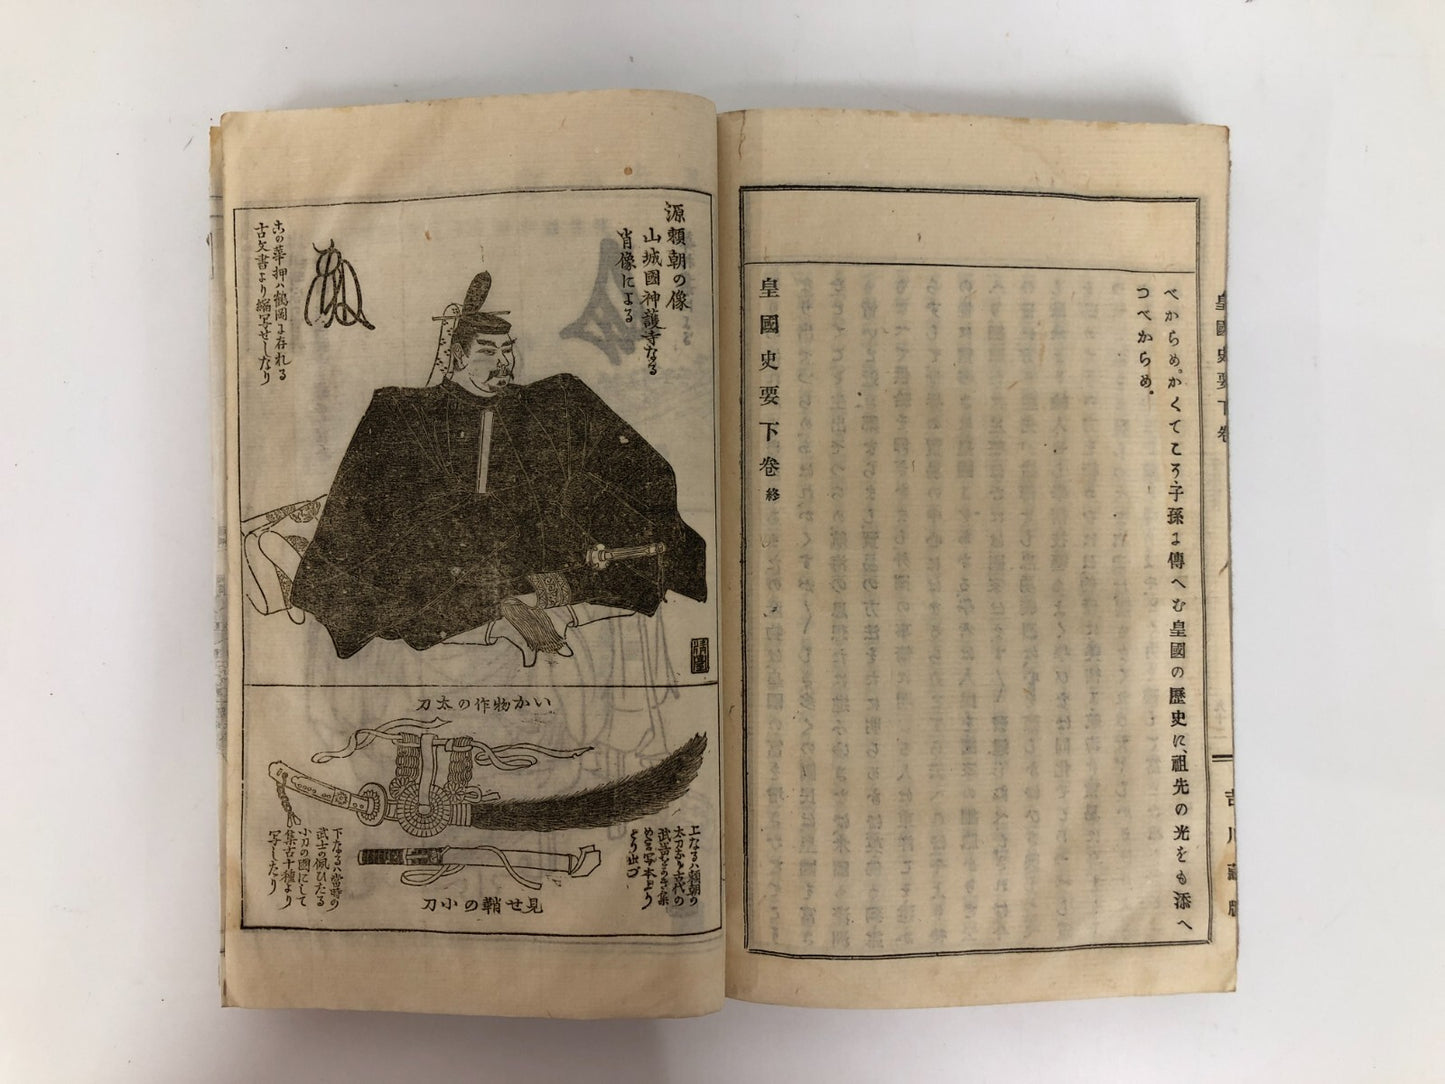 べからめ。かくてこう、子孫に傳へむ皇國の歷史に、祖先の光をも添へ
つべからめ。
皇國史要下卷 終
皇國史要下卷
吉川藏版
源頼朝の像
山城國神護寺なる
肖像による
この華押ハ鶴岡に存れる
古文書より縮写せしなり
いか物作の太刀
上なるハ頼朝の
下なるハ當時の
武士の佩ひたる
小刀の圖にして
集古十種より
写したり
見せ鞘の小刀